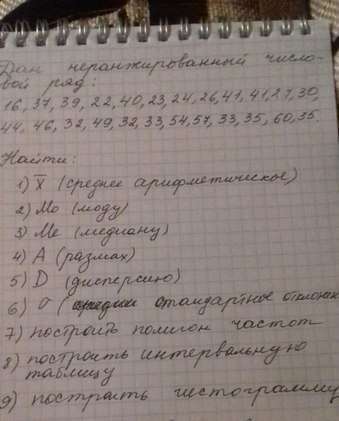 Дан неранжированный число-
вой ряд:
16, 37, 39, 22, 40, 23, 24, 26, 41, 41, 27, 30,
44, 46, 32, 49, 32, 33, 54, 57, 33, 35, 60, 35.
Найти:
1) X̅ (среднее арифметическое)
2) Мо (моду)
3) Ме (медиану)
4) А (размах)
5) D (дисперсию)
6) σ ( стандартное отклонен
7) построить полигон частот
8) построить интервальную
таблицу
9) построить гистограмму